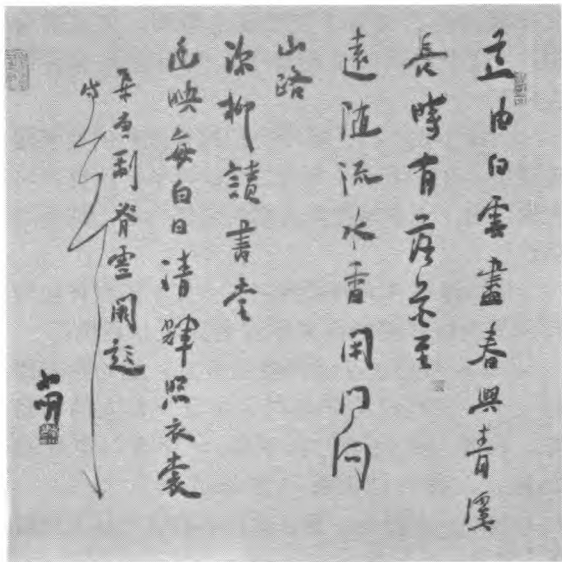 道由白雲盡春與青溪
長時有落花至
遠隨流水香閑門向
山路
深柳讀書堂
幽映每白日清輝照衣裳
唐劉昚虛闕題
詩